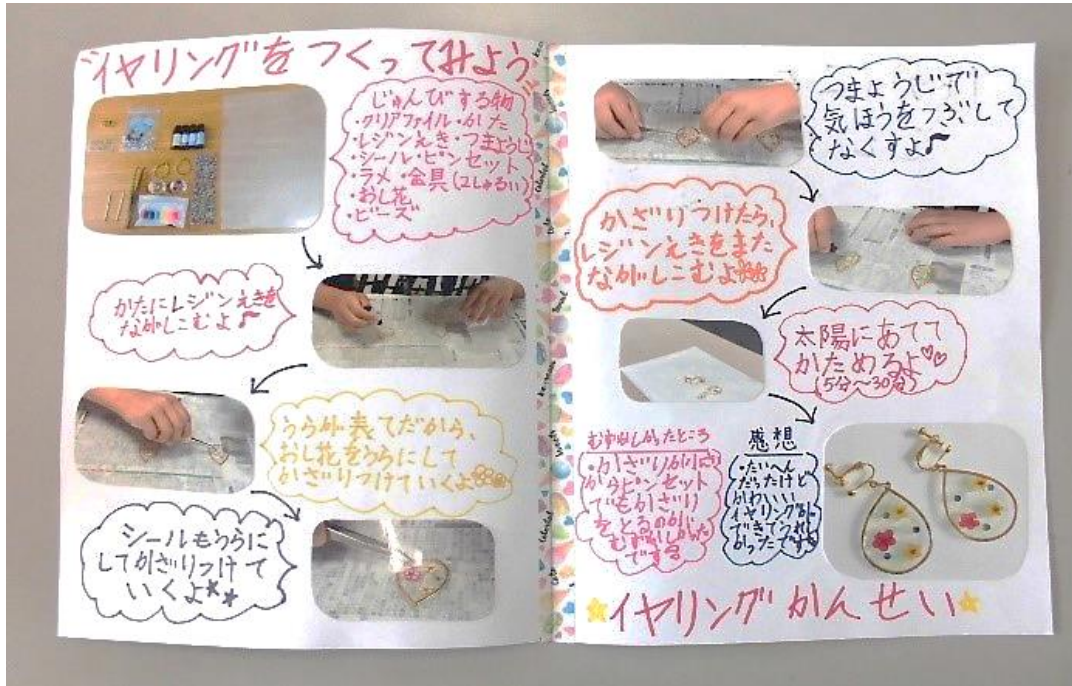 イヤリングをつくってみよう
じゅんびする物
・クリアファイル・かた
・レジンえき・つまようじ
・シール・ピンセット
・ラメ・金具(2しゅるい)
・おし花
・ビーズ
かたにレジンえきを
ながしこむよ♪
うらが表てだから、
おし花をうらにして
かざりつけていくよ
シールもうらに
してかざりつけて
いくよ
つまようじで
気ほうをつぶして
なくすよ♪
かざりつけたら、
レジンえきをまた
ながしこむよ
太陽にあてて
かためるよ♡♡
(5分〜30分)
むずかしかったところ
・かざりが小さい
からピンセット
でもかざり
をとるのが
むずかしかった
です
感想
・たいへん
だったけど
かわいい
イヤリングが
できてうれし
かったです
☆イヤリングかんせい☆